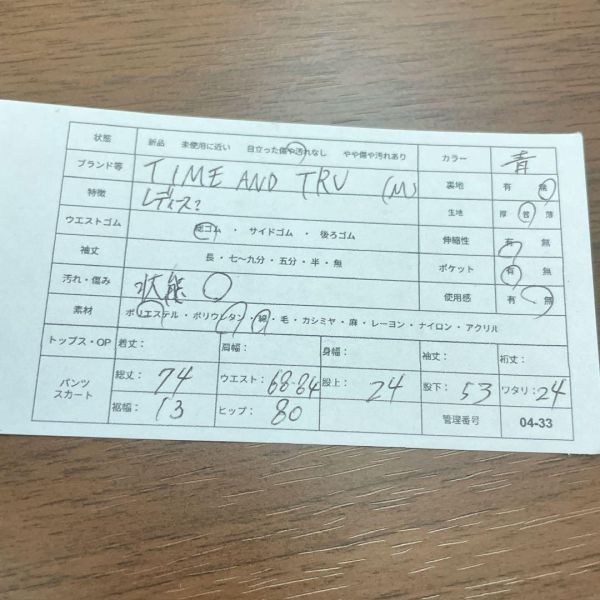 状態 新品 未使用に近い 目立った傷や汚れなし やや傷や汚れあり カラー 青
ブランド等 TIME AND TRU (M) 裏地 有 無
特徴 レディス? 生地 厚 普 薄
ウエストゴム 総ゴム ・ サイドゴム ・ 後ろゴム 伸縮性 有 無
袖丈 長・七～九分・五分・半・無 ポケット 有 無
汚れ・傷み 状態 ○ 使用感 有 無
素材 ポリエステル・ポリウレタン・綿・毛・カシミヤ・麻・レーヨン・ナイロン・アクリル
トップス・OP 着丈: 肩幅: 身幅: 袖丈: 裄丈:
パンツ スカート 総丈: 74 ウエスト: 68-84 股上: 24 股下: 53 ワタリ: 24
裾幅: 13 ヒップ: 80 管理番号 04-33